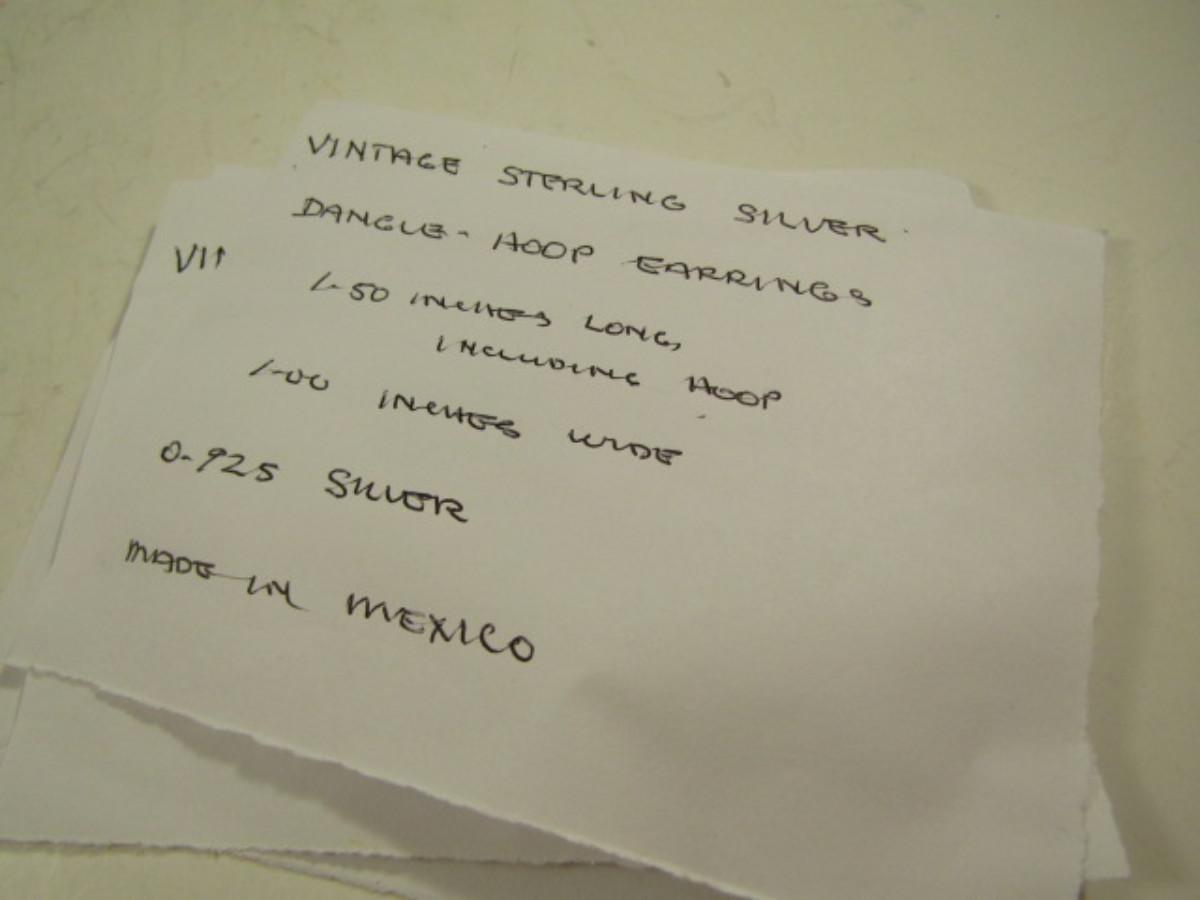 VINTAGE STERLING SILVER
DANGLE-HOOP EARRINGS
VI↑
1-50 INCHES LONG,
INCLUDING HOOP
1-00 INCHES WIDE
0-925 SILVER
MADE IN MEXICO